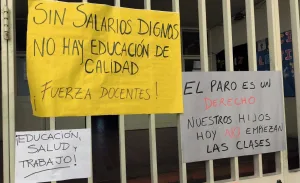 SIN SALARIOS DIGNOS
NO HAY EDUCACIÓN DE
CALIDAD
¡FUERZA DOCENTES!
EL PARO ES UN
DERECHO
NUESTROS HIJOS
HOY NO EMPIEZAN
LAS CLASES
¡EDUCACIÓN,
SALUD Y
TRABAJO!